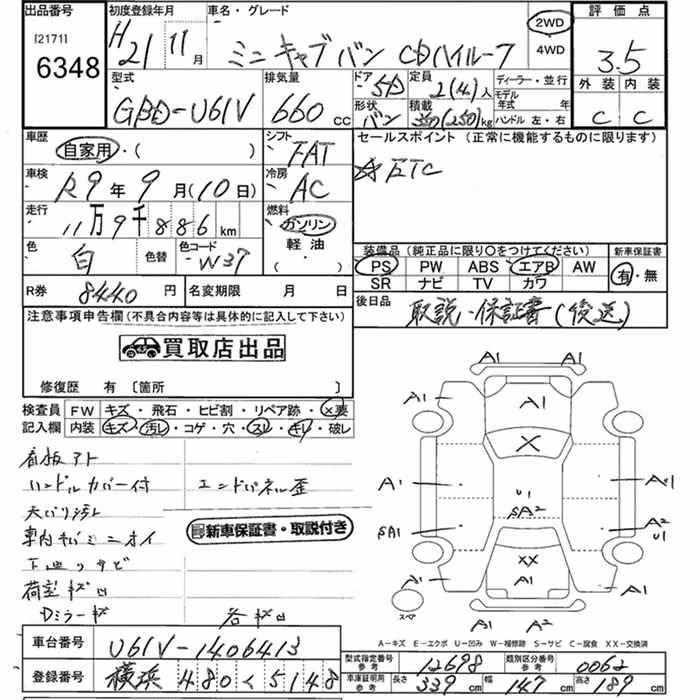 出品番号 初度登録年月 車名・グレード 評価点
[21711] 6348
H21 11月 ミニキャブバン CDハイルーフ 2WD 4WD 3.5
型式 排気量 ドア 5D 定員 2(4)人 ディーラー・並行 外装 内装
GBD-U61V 660cc 形状 バン 積載 350(250)kg モデル年式 年 ハンドル 左・右 C C
車歴 自家用・( ) シフト FAT セールスポイント (正常に機能するものに限ります)
車検 R9年9月(10日) 冷房 AC ☆ETC
走行 11万9千886km 燃料 ガソリン 軽油 ( )
色 白 色替 色コード W37
装備品 (純正品に限り○をつけてください) 新車保証書
PS PW ABS エアB AW 有・無
SR ナビ TV カワ
R券 8440円 名変期限 月 日 後日品 取説・保証書(後送)
注意事項申告欄(不具合内容等は具体的に記入して下さい)
買取店出品
修復歴 有 〔箇所 〕
検査員記入欄 FW キズ・飛石・ヒビ割・リペア跡・×要
内装 キズ・汚レ・コゲ・穴・スレ・キレ・破レ
看板アト
ハンドルカバー付 エンドパネル歪
天バリ汚レ
新車保証書・取説付き
下廻りサビ
荷室キズ凹
Dミラーキズ 各キズ凹
A1 A1
A1
A1 A1
X
A1 A1
U1
βA2
βA1 A2
U1
XX
A1
A1 A1
スペア
A1 A2
A-キズ E-エクボ U-凹み W-補修跡 S-サビ C-腐食 XX-交換済
車台番号 U61V-1406413
型式指定番号 参考 12698 類別区分番号 参考 0062
登録番号 横浜 480 く 5148
車庫証明用 参考 長さ 339cm 幅 147cm 高さ 189cm